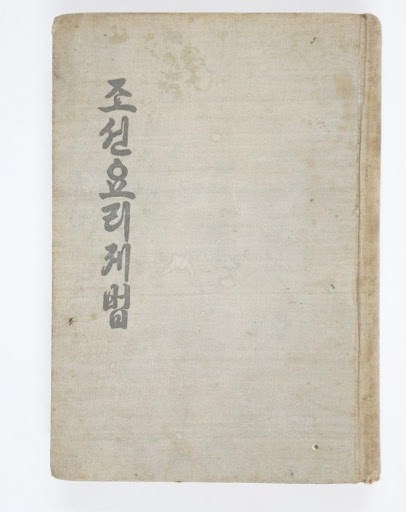 조선요리제법